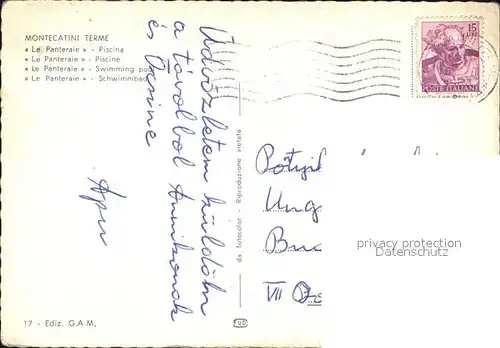 MONTECATINI TERME
« Le Panteraie » - Piscina
« Le Panteraie » - Piscine
« Le Panteraie » - Swimming poo
« Le Panteraie » - Schwimmbad
Üdvözletem küldöm
a távolból Annikonak
és Ferinek
Apu
da fotocolor - Riproduzione vietata
15
POSTE ITALIANE
Ung
Bu
VII
privacy protection
Datenschutz
17 - Ediz. G.A.M.